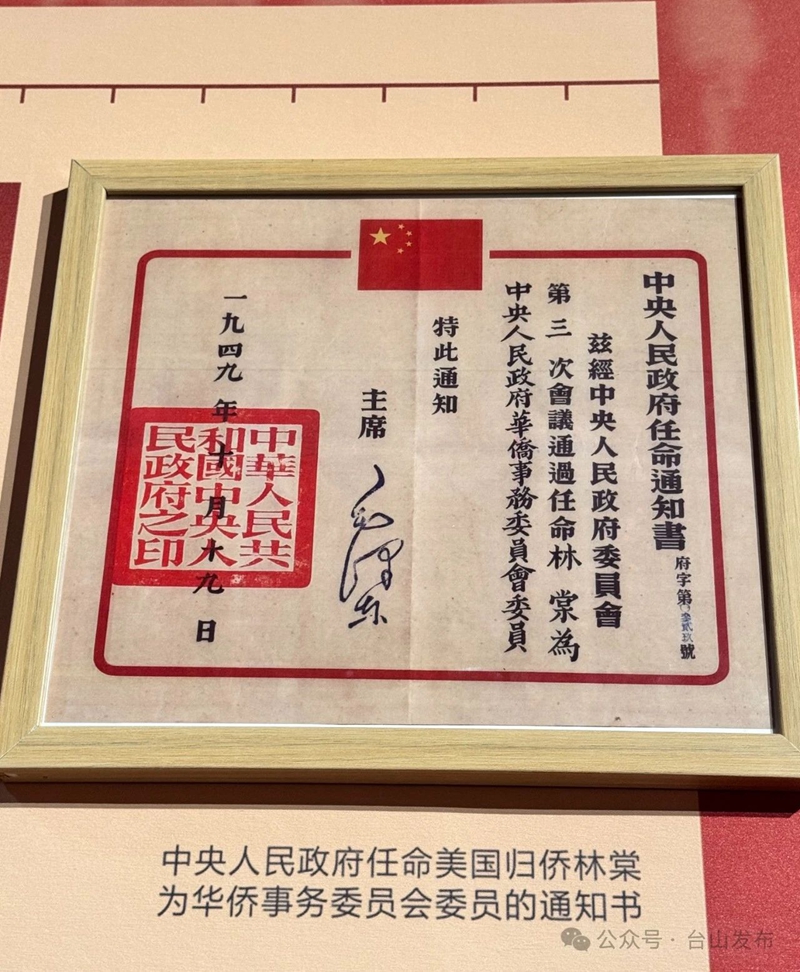 中央人民政府任命通知書
府字第叁貳玖號
茲經中央人民政府委員會
第三次會議通過任命林棠為
中央人民政府華僑事務委員會委員
特此通知
主席 毛澤東
一九四九年十月十九日
中華人民共
和國中央人
民政府之印
中央人民政府任命美国归侨林棠
为华侨事务委员会委员的通知书
公众号·台山发布